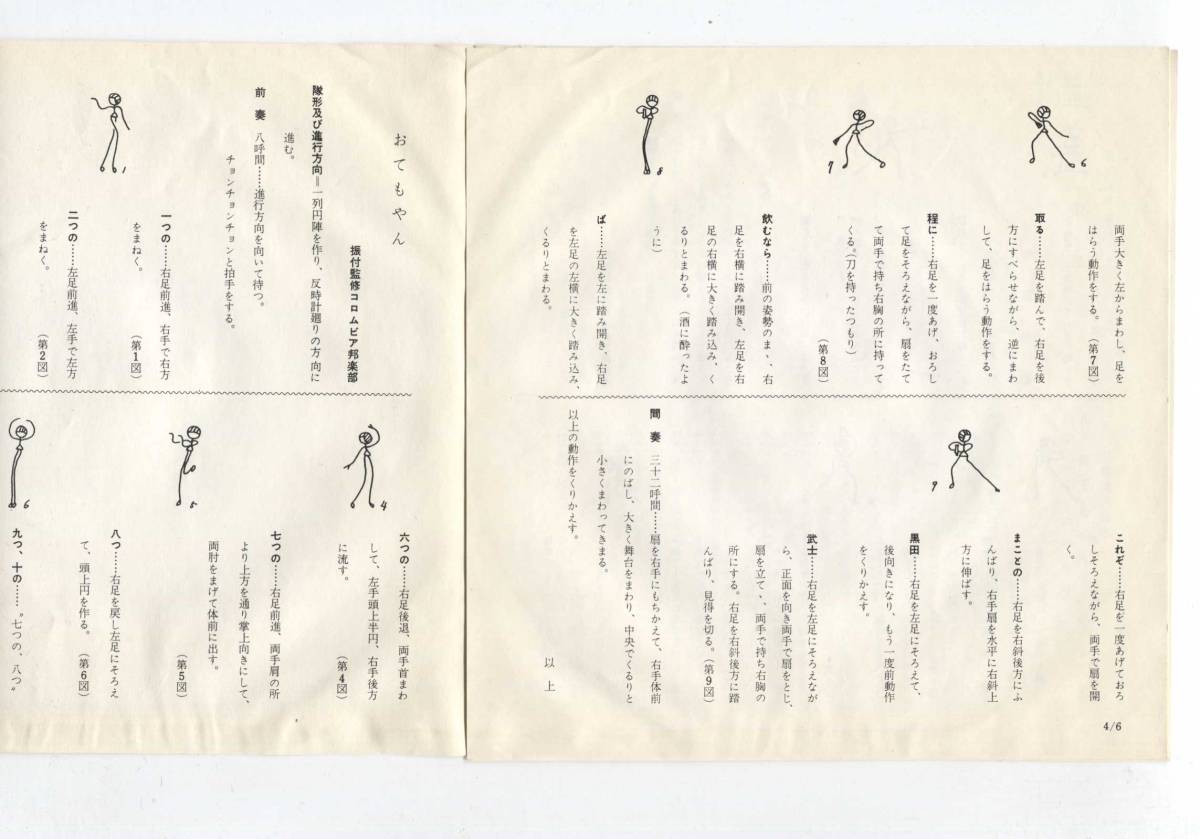 両手大きく左からまわし、足を
はらう動作をする。(第7図)
取る……左足を踏んで、右足を後
方にすべらせながら、逆にまわ
して、足をはらう動作をする。
程に……右足を一度あげ、おろし
て足をそろえながら、扇をたて
て両手で持ち右胸の所に持って
くる。(刀を持ったつもり)
(第8図)
飲むなら……前の姿勢のまゝ、右
足を右横に踏み開き、左足を右
足の右横に大きく踏み込み、く
るりとまわる。(酒に酔ったよ
うに)
ば……左足を左に踏み開き、右足
を左足の左横に大きく踏み込み、
くるりとまわる。
6
7
8
これぞ……右足を一度あげておろ
しそろえながら、両手で扇を開
く。
まことの……右足を右斜後方にふ
んばり、右手扇を水平に右斜上
方に伸ばす。
黒田……右足を左足にそろえて、
後向きになり、もう一度前動作
をくりかえす。
武士……右足を左足にそろえなが
ら、正面を向き両手で扇をとじ、
扇を立てゝ、両手で持ち右胸の
所にする。右足を右斜後方に踏
んばり、見得を切る。(第9図)
間奏 三十二呼間……扇を右手にもちかえて、右手体前
にのばし、大きく舞台をまわり、中央でくるりと
小さくまわってきまる。
以上の動作をくりかえす。
以上
9
4/6
おてもやん
振付監修コロムビア邦楽部
隊形及び進行方向=一列円陣を作り、反時計廻りの方向に
進む。
前奏 八呼間……進行方向を向いて待つ。
チョンチョンチョンと拍手をする。
一つの……右足前進、右手で右方
をまねく。(第1図)
二つの……左足前進、左手で左方
をまねく。(第2図)
1
六つの……右足後退、両手首まわ
して、左手頭上半円、右手後方
に流す。(第4図)
七つの……右足前進、両手肩の所
より上方を通り掌上向きにして、
両肘をまげて体前に出す。
(第5図)
八つ……右足を戻し左足にそろえ
て、頭上円を作る。(第6図)
九つ、十の……〝七つの、八つ〟
4
5
6